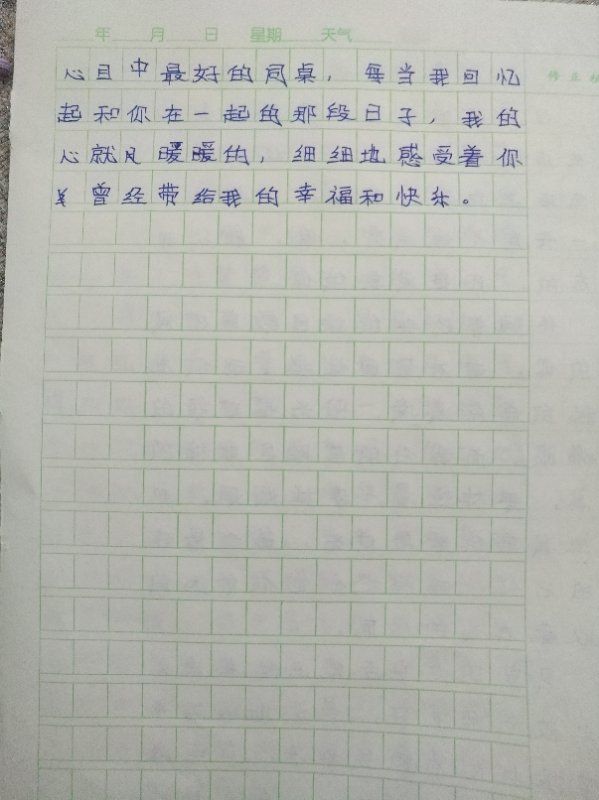 年 月 日 星期 天气
心目中最好的同桌，每当我回忆
起和你在一起的那段日子，我的
心就 暖暖的，细细地感受着你
曾经带给我的幸福和快乐。